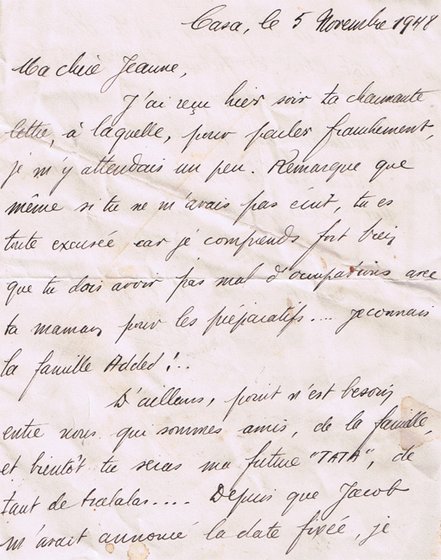 Casa, le 5 Novembre 1948
Ma chère Jeanne,
J'ai reçu hier soir ta charmante
lettre, à laquelle, pour parler franchement,
je m'y attendais un peu. Remarque que
même si tu ne m'avais pas écrit, tu es
toute excusée car je comprends fort bien
que tu dois avoir pas mal d'occupations avec
ta maman pour les préparatifs... je connais
la famille Added!..
D'ailleurs, point n'est besoin
entre nous qui sommes amis, de la famille,
et bientôt tu seras ma future "TATA", de
tant de tralalas.... Depuis que Jacob
m'avait annoncé la date fixée, je